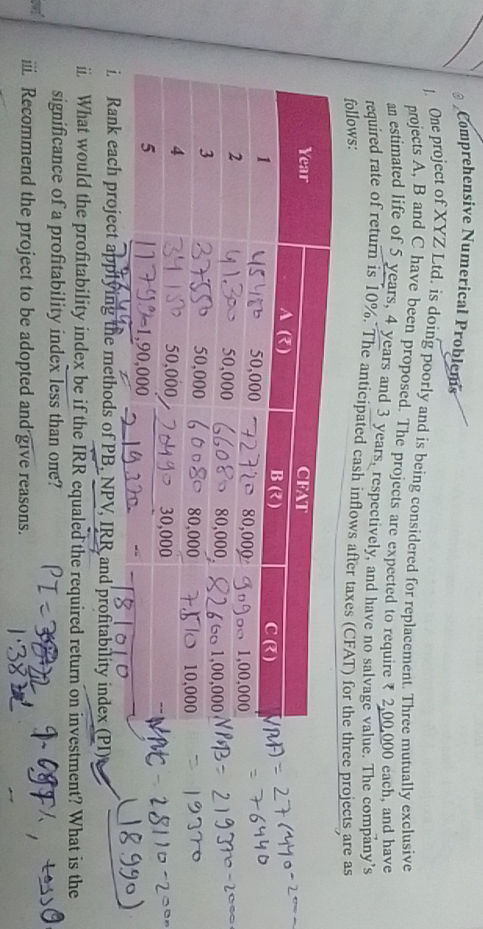 Comprehensive Numerical Problems
1. One project of XYZ Ltd. is doing poorly and is being considered for replacement. Three mutually exclusive
projects A, B and C have been proposed. The projects are expected to require ₹ 2,00,000 each, and have
an estimated life of 5 years, 4 years and 3 years, respectively, and have no salvage value. The company's
required rate of return is 10%. The anticipated cash inflows after taxes (CFAT) for the three projects are as
follows:
Year CFAT
A (₹) B (₹) C (₹)
1 45450 50,000 72720 80,000 90900 1,00,000 = 76440
2 41300 50,000 66080 80,000 82600 1,00,000 NPVB = 219370-20000
3 37550 50,000 60080 80,000 7510 10,000 = 19370
4 34150 50,000 20490 30,000
5 117990 1,90,000 = 219370 181010 (18990)
i. Rank each project applying the methods of PB, NPV, IRR and profitability index (PI)
ii. What would the profitability index be if the IRR equaled the required return on investment? What is the
significance of a profitability index less than one?
iii. Recommend the project to be adopted and give reasons.
PI =